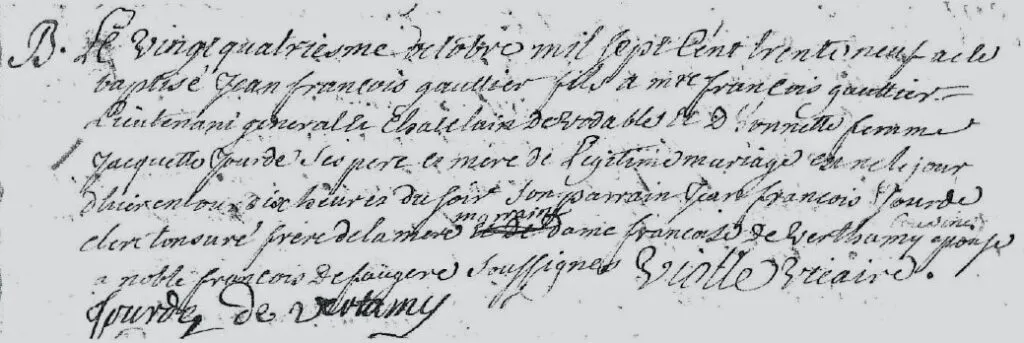 B. Le vingt quatriesme octobre mil sept cent trente neuf a eté
baptisé Jean françois gaultier fils a mre françois gaultier
Lieutenant general le Chatelain de vodables et d'honnette femme
Jacquette Jourde ses pere et mere de Legitime mariage et né le jour
d'hier entour dix heures du soir son parrain Jean françois Jourde
clerc tonsuré frere de la mere marraine dame francoise de Verthamy cousine epouse
a noble françois de faugere soussignes Vielle vicaire.
Jourde de vertamy